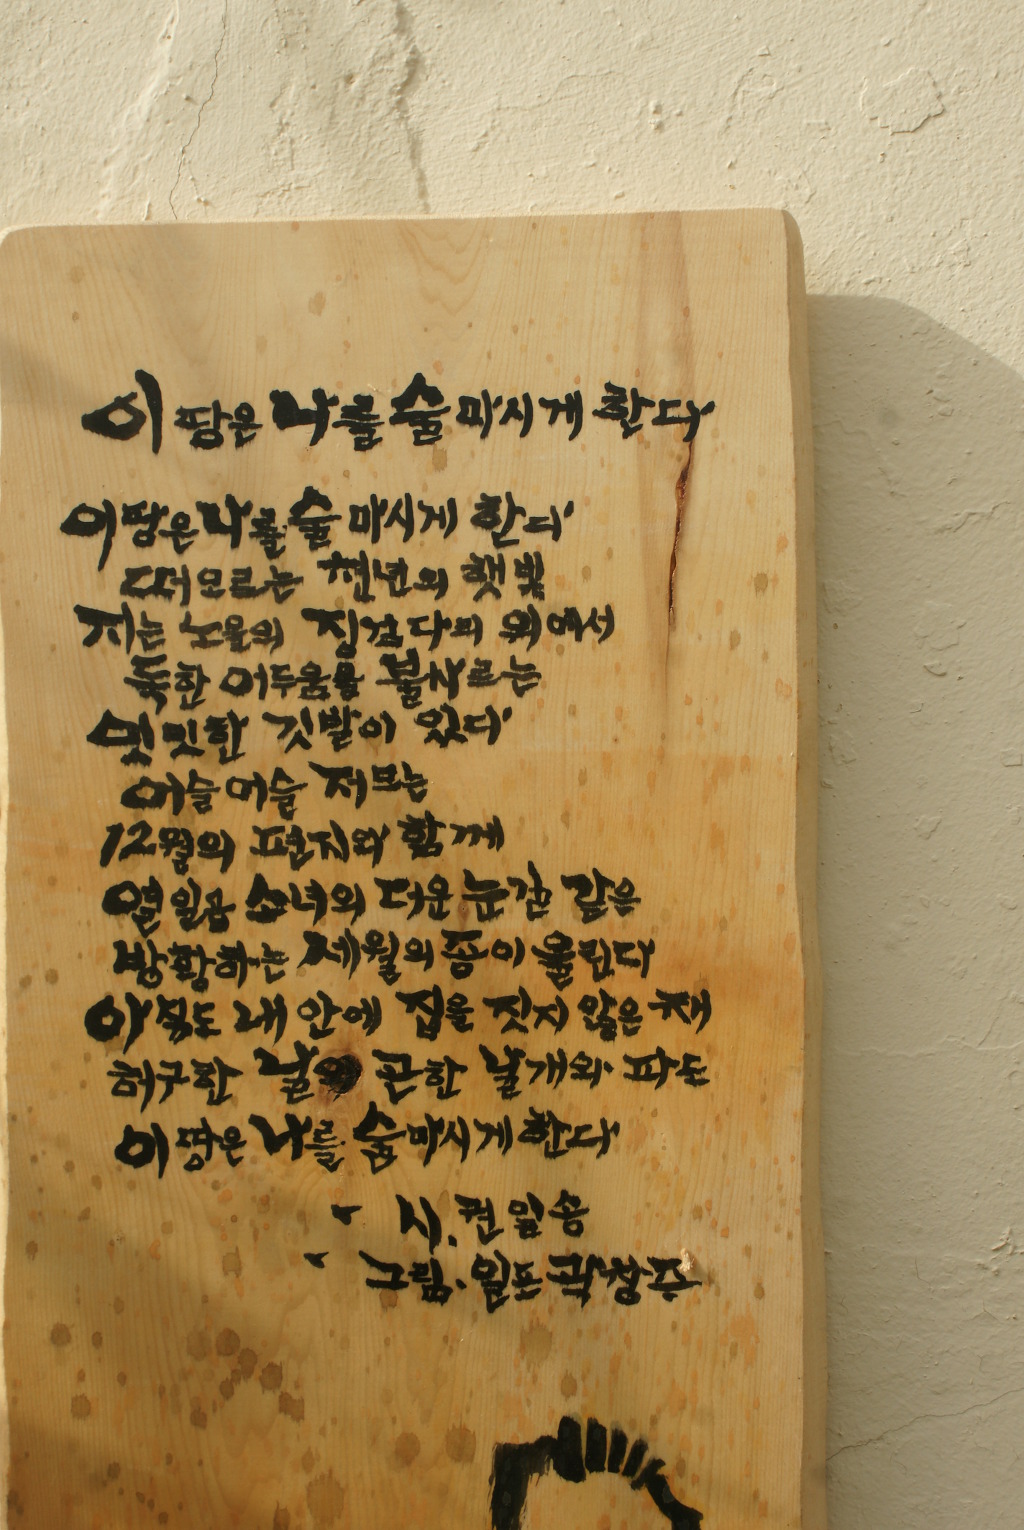 이 땅은 나를 술 마시게 한다
이 땅은 나를 술 마시게 한다
떠오르는 천년의 햇빛
지는 노을의 징검다리 위에서
독한 어두움을 불사르는
밋밋한 깃발이 있다
어슬어슬 저무는
12월의 편지와 함께
열일곱 소녀의 더운 눈길 같은
방황하는 세월의 종이 울린다
아직도 내 안에 집을 짓지 않은 채
허구한 날의 곤한 날개와 파도
이 땅은 나를 술 마시게 한다
시. 권일송
그림. 일포 곽창주